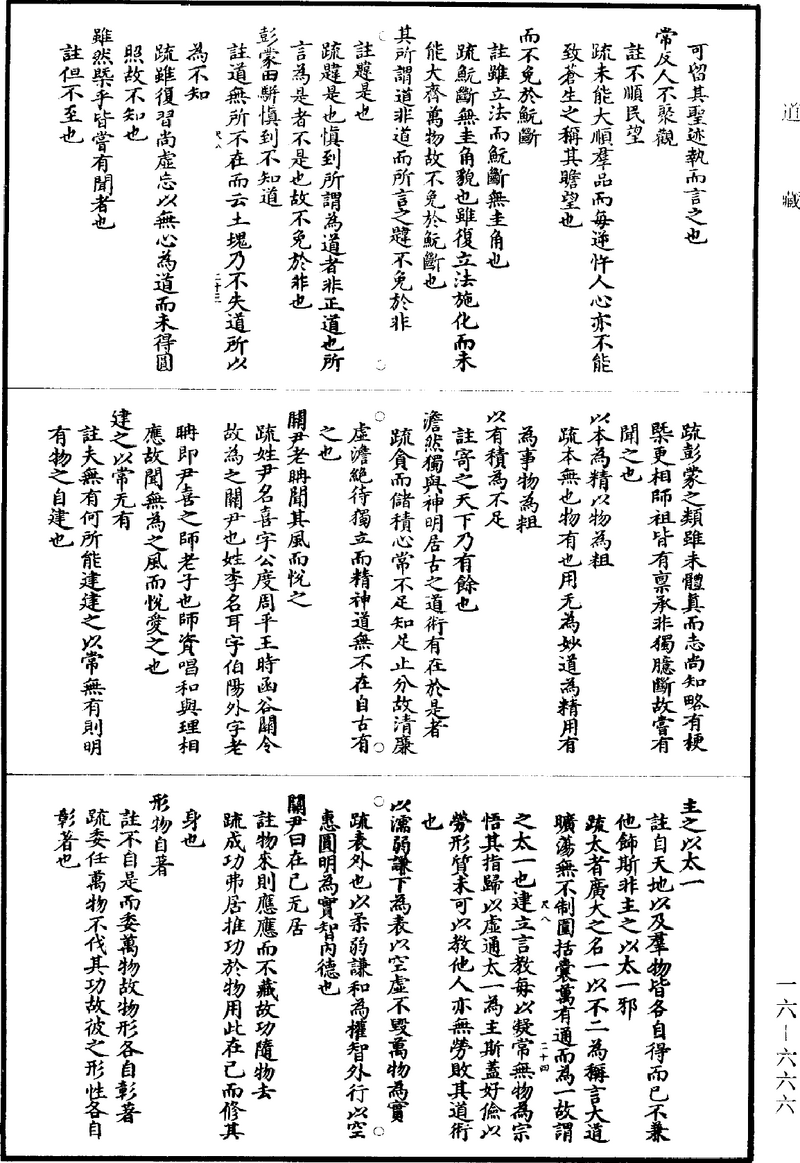 道藏
可留其聖迹執而言之也
常反人不聚觀
註不順民望
疏未能大順羣品而每逆忤人心亦不能
致蒼生之稱其瞻望也
而不免於魭斷
註雖立法而魭斷無圭角也
疏魭斷無圭角貌也雖復立法施化而未
能大齊萬物故不免於魭斷也
其所謂道非道而所言之韙不免於非
註韙是也
疏韙是也慎到所謂為道者非正道也所
言為是者不是也故不免於非也
彭蒙田駢慎到不知道
註道無所不在而云土塊乃不失道所以
尺八
二十三
為不知
疏雖復習尚虛忘以無心為道而未得圓
照故不知也
雖然槩乎皆嘗有聞者也
註但不至也
疏彭蒙之類雖未體真而志尚知略有梗
槩更相師祖皆有禀承非獨臆斷故嘗有
聞之也
以本為精以物為粗
疏本無也物有也用无為妙道為精用有
為事物為粗
以有積為不足
註寄之天下乃有餘也
疏貪而儲積心常不足知足止分故清廉
澹然獨與神明居古之道術有在於是者
虛澹絕待獨立而精神道無不在自古有
之也
關尹老聃聞其風而悅之
疏姓尹名喜字公度周平王時函谷關令
故為之關尹也姓李名耳字伯陽外字老
聃即尹喜之師老子也師資唱和與理相
應故聞無為之風而悅愛之也
建之以常无有
註夫無有何所能建建之以常無有則明
有物之自建也
主之以太一
註自天地以及羣物皆各自得而已不兼
他飾斯非主之以太一邪
疏太者廣大之名一以不二為稱言大道
曠蕩無不制圍括囊萬有通而為一故謂
之太一也建立言教每以凝常無物為宗
尺八
二十四
悟其指歸以虛通太一為主斯蓋好儉以
勞形質未可以教他人亦無勞敗其道術
也
以濡弱謙下為表以空虛不毀萬物為實
疏表外也以柔弱謙和為權智外行以空
惠圓明為實智內德也
關尹曰在己无居
註物來則應應而不藏故功隨物去
疏成功弗居推功於物用此在己而修其
身也
形物自著
註不自是而委萬物故物形各自彰著
疏委任萬物不伐其功故彼之形性各自
彰著也
一六—六六六